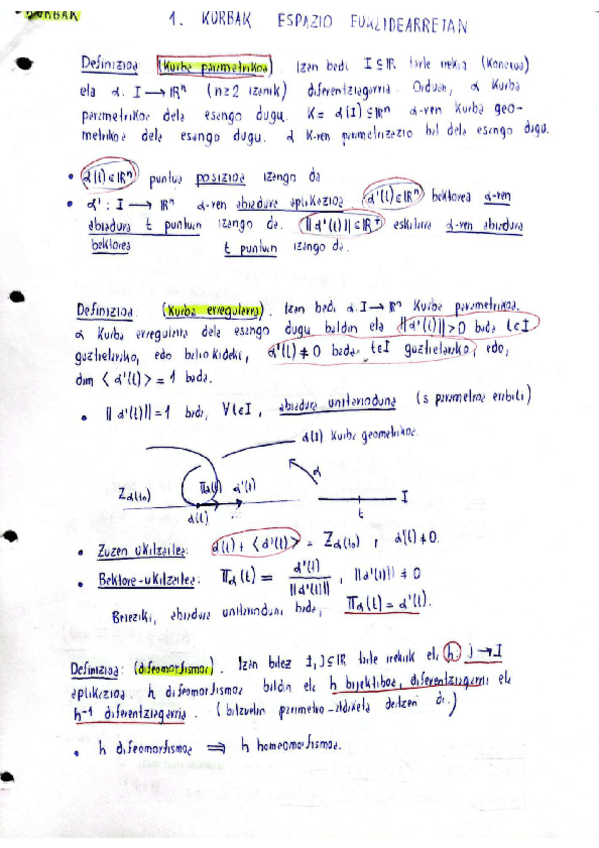 KURBAK
1. KURBAK ESPAZIO EUKLIDEARRETAN
Definizioa (Kurba parametrikoa). Izan bedi I ⊆ ℝ tarte irekia (Konexua)
ela α: I → ℝⁿ (n≥2 izanik) diferentziagarria. Orduan, α Kurba
parametrikoa dela esango dugu. K = α(I) ⊆ ℝⁿ α-ren Kurba geo-
metrikoa dela esango dugu. α K-ren parametrizazio bat dela esango dugu.
• α(t) ∈ ℝⁿ puntua posizioa izango da
• α' : I → ℝⁿ α-ren abiadura aplikazioa. α'(t) ∈ ℝⁿ bektorea α-ren
abiadura t puntuan izango da. ||α'(t)|| ∈ ℝ⁺ eskalarra α-ren abiadura
bektorea t puntuan izango da.
Definizioa. (Kurba erregularra). Izan bedi α: I → ℝⁿ Kurba parametrikoa.
α Kurba erregularra dela esango dugu baldin eta ||α'(t)|| > 0 bada t∈I
guztietarako, edo baliokideki, α'(t) ≠ 0 bada t∈I guztietarako, edo,
dim < α'(t) > = 1 bada.
• ||α'(t)|| = 1 bada, ∀t∈I, abiadura unitarioduna (s parametroa erabili)
α(I) Kurba geometrikoa.
Z_α(t₀) 𝕋_α(t) α'(t) α I
α(t) t
• Zuzen ukitzailea: α(t) + <α'(t)> = Z_α(t₀) , α'(t) ≠ 0.
• Bektore-ukitzailea: 𝕋_α(t) = α'(t) / ||α'(t)|| , ||α'(t)|| ≠ 0
Bereziki, abiadura unitarioduna bada, 𝕋_α(t) = α'(t).
Definizioa: (difeomorfismoa). Izan bitez I, J ⊆ ℝ tarte irekiak eta h: J → I
aplikazioa. h difeomorfismoa baldin eta h bijektiboa, diferentziagarria eta
h⁻¹ diferentziagarria. (batzuetan parametro-aldaketa deitzen da.)
• h difeomorfismoa ⟹ h homeomorfismoa.